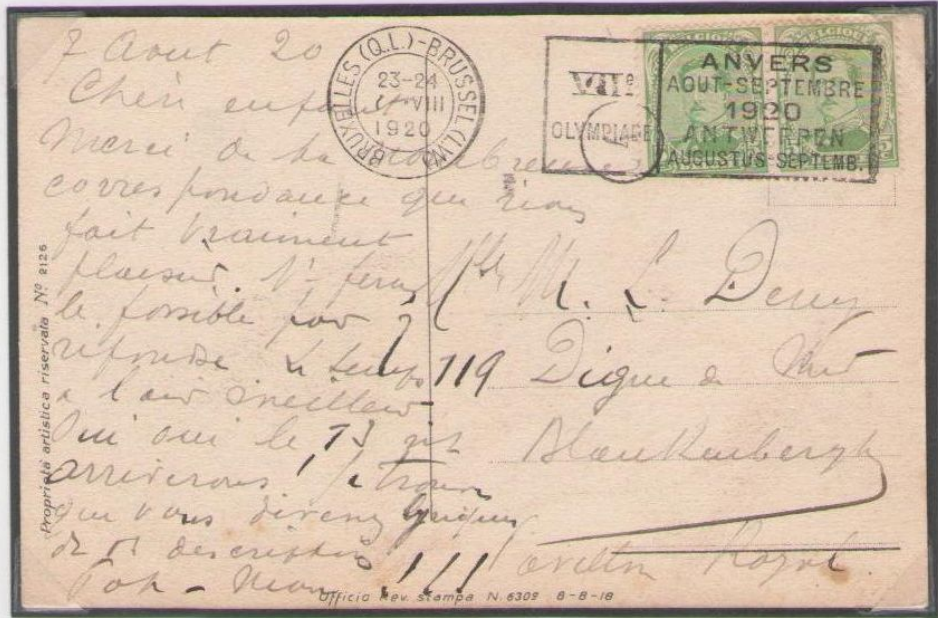 7 Aout 20
Chéri enfant
Merci de la nombreuse
correspondance qui nous
fait vraiment
plaisir.
le possible pour
répondre Le temps
a l'air meilleur
Oui oui le 13
arriverons
que vous
de descriptions
BRUXELLES (Q.L.)-BRUSSEL (L.W.)
23-24
VIII
1920
VIIe
OLYMPIADE
A
ANVERS
AOUT-SEPTEMBRE
1920
ANTWERPEN
AUGUSTUS-SEPTEMB.
BELGIQUE
BELGIQUE
M. L.
119 Digue de Mer
Blankenberghe
Pavillon Royal
Proprietà artistica riservata No 2126
Ufficio Rev. stampa N. 6309 8-8-18